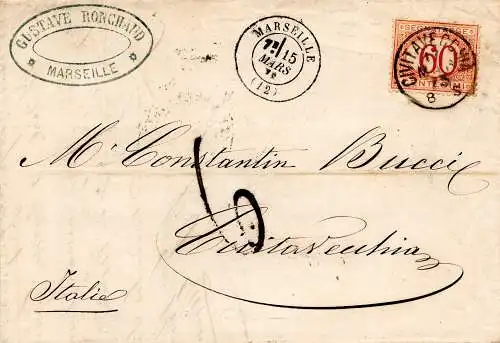 GUSTAVE RONCHAUD
MARSEILLE
MARSEILLE
15
MARS
(12)
SEGNATASSE
60
CENTESIMI
CIVITAVECCHIA
8
Mr Constantin Bucci
6
Civitavecchia
Italie